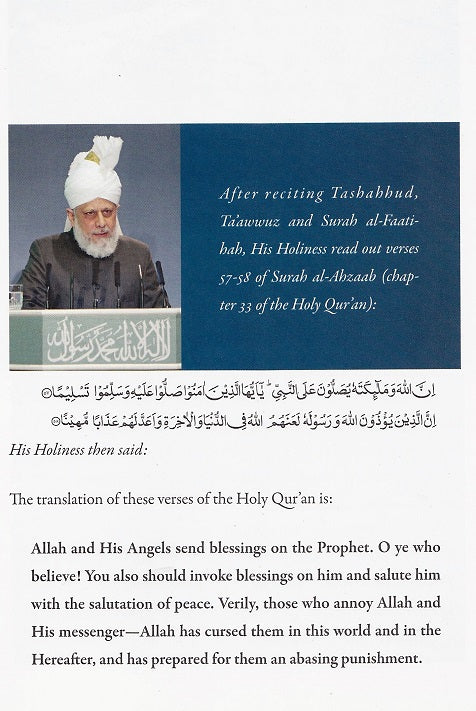 After reciting Tashahhud,
Ta'awwuz and Surah al-Faati-
hah, His Holiness read out verses
57-58 of Surah al-Ahzaab (chap-
ter 33 of the Holy Qur'an):
لا اله الا الله محمد رسول الله
اِنَّ اللّٰهَ وَ مَلٰٓئِكَتَهٗ يُصَلُّوْنَ عَلَى النَّبِيِّ ؕ يٰۤاَيُّهَا الَّذِيْنَ اٰمَنُوْا صَلُّوْا عَلَيْهِ وَ سَلِّمُوْا تَسْلِيْمًا ﴿۵۷﴾
اِنَّ الَّذِيْنَ يُؤْذُوْنَ اللّٰهَ وَ رَسُوْلَهٗ لَعَنَهُمُ اللّٰهُ فِي الدُّنْيَا وَ الْاٰخِرَةِ وَ اَعَدَّ لَهُمْ عَذَابًا مُّهِيْنًا ﴿۵۸﴾
His Holiness then said:
The translation of these verses of the Holy Qur'an is:
Allah and His Angels send blessings on the Prophet. O ye who
believe! You also should invoke blessings on him and salute him
with the salutation of peace. Verily, those who annoy Allah and
His messenger—Allah has cursed them in this world and in the
Hereafter, and has prepared for them an abasing punishment.